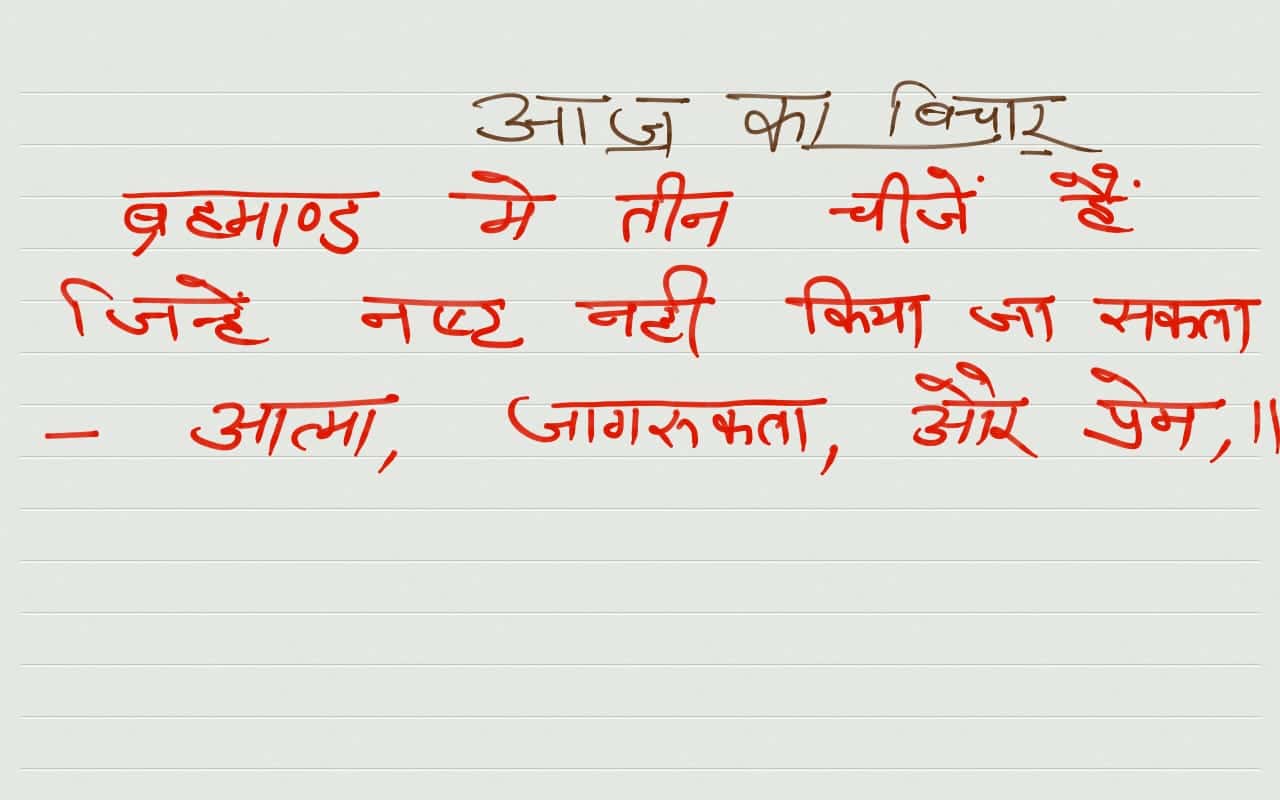 आज का बिचार
ब्रहमाण्ड मे तीन चीजें हैं
जिन्हें नष्ट नही किया जा सकता
- आत्मा, जागरुकता, और प्रेम,॥